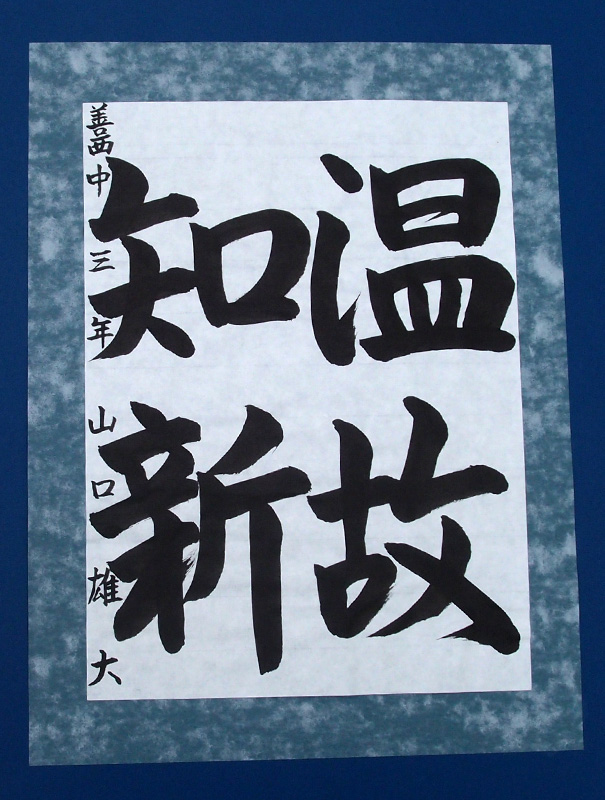 温故
知新
善西中三年山口雄大